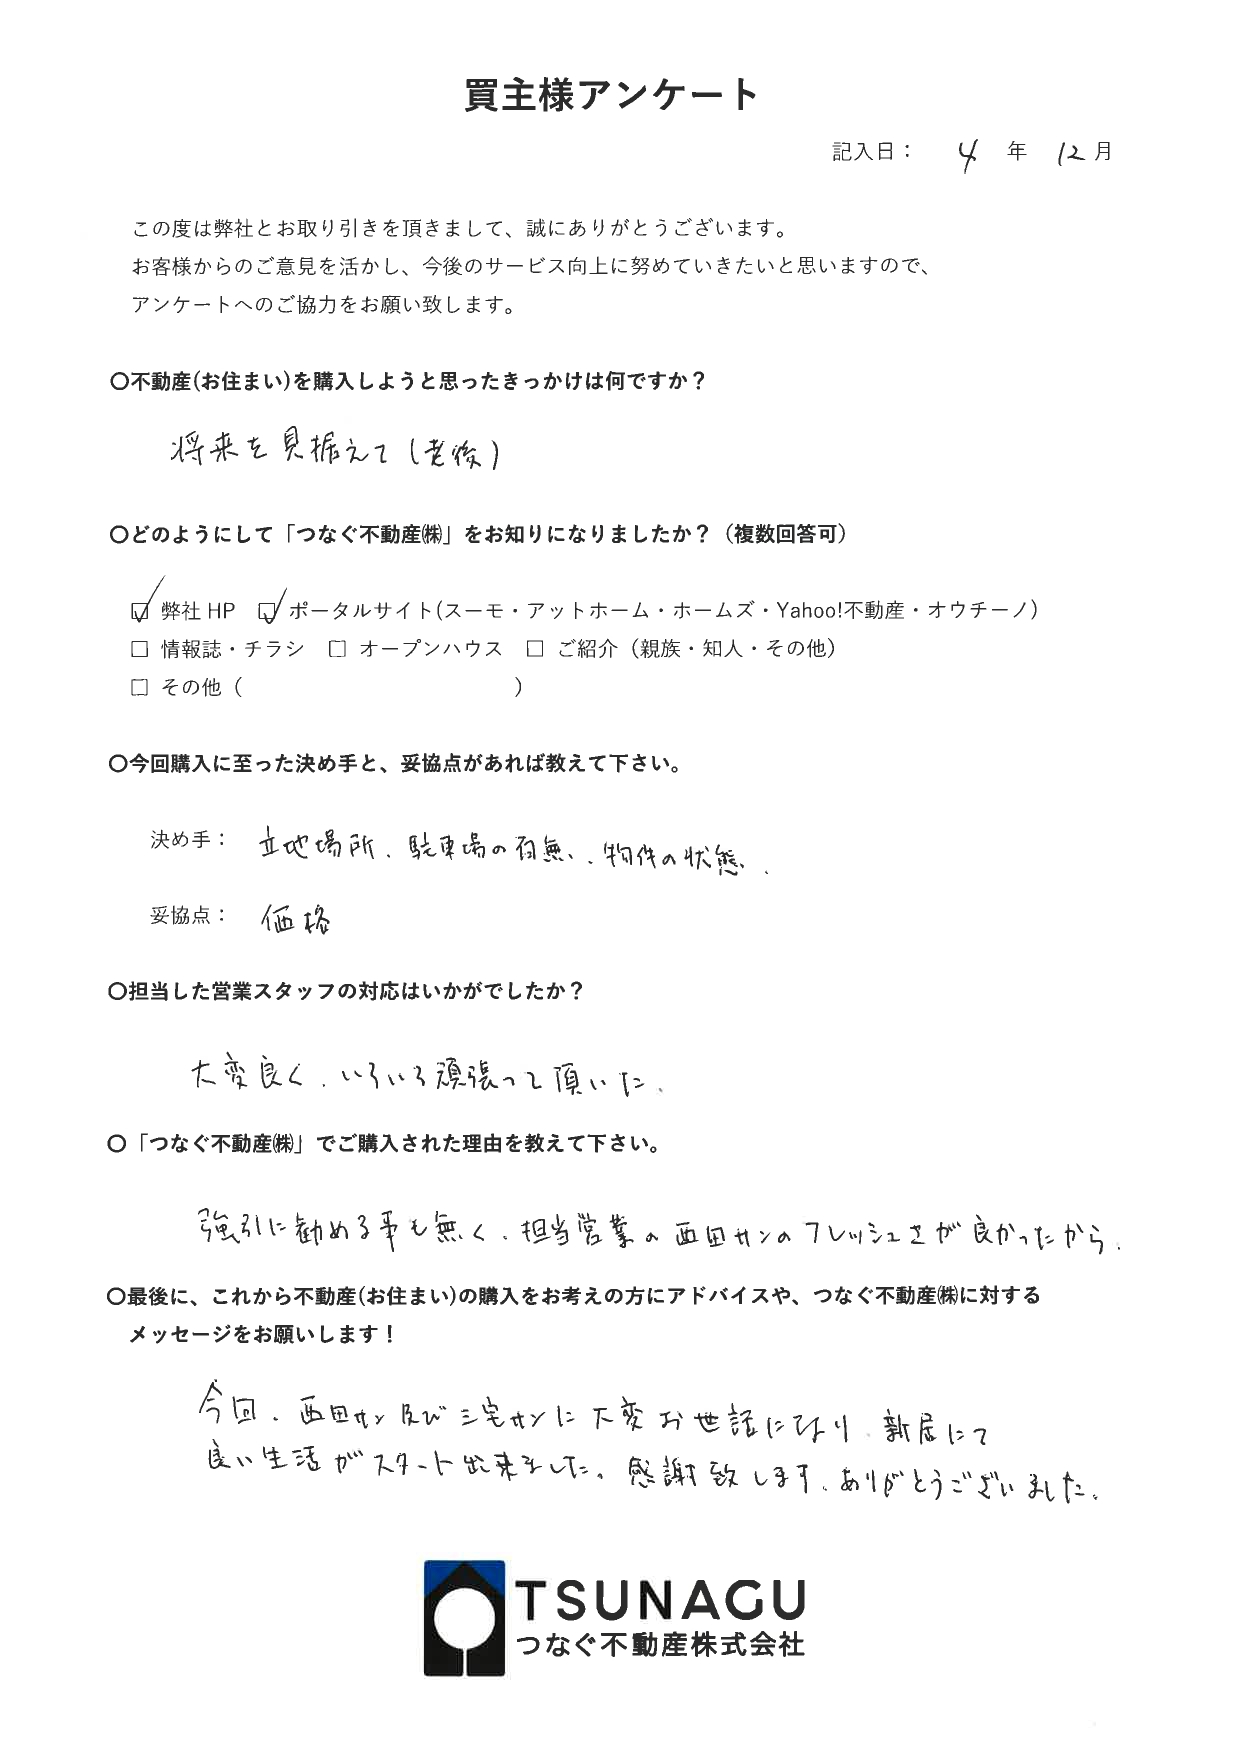 買主様アンケート
記入日： 4 年 12 月
この度は弊社とお取り引きを頂きまして、誠にありがとうございます。
お客様からのご意見を活かし、今後のサービス向上に努めていきたいと思いますので、
アンケートへのご協力をお願い致します。
〇不動産(お住まい)を購入しようと思ったきっかけは何ですか？
将来を見据えて(老後)
〇どのようにして「つなぐ不動産㈱」をお知りになりましたか？（複数回答可）
☑ 弊社 HP ☑ ポータルサイト(スーモ・アットホーム・ホームズ・Yahoo!不動産・オウチーノ)
□ 情報誌・チラシ □ オープンハウス □ ご紹介（親族・知人・その他）
□ その他（ ）
〇今回購入に至った決め手と、妥協点があれば教えて下さい。
決め手： 立地場所、駐車場の有無、、物件の状態、
妥協点： 価格
〇担当した営業スタッフの対応はいかがでしたか？
大変良く、いろいろ頑張って頂いた。
〇「つなぐ不動産㈱」でご購入された理由を教えて下さい。
強引に勧める事も無く、担当営業の西田サンのフレッシュさが良かったから。
〇最後に、これから不動産(お住まい)の購入をお考えの方にアドバイスや、つなぐ不動産㈱に対する
メッセージをお願いします！
今回、西田サン及び三宅サンに大変お世話になり、新居にて
良い生活がスタート出来ました。感謝致します。ありがとうございました。
TSUNAGU
つなぐ不動産株式会社